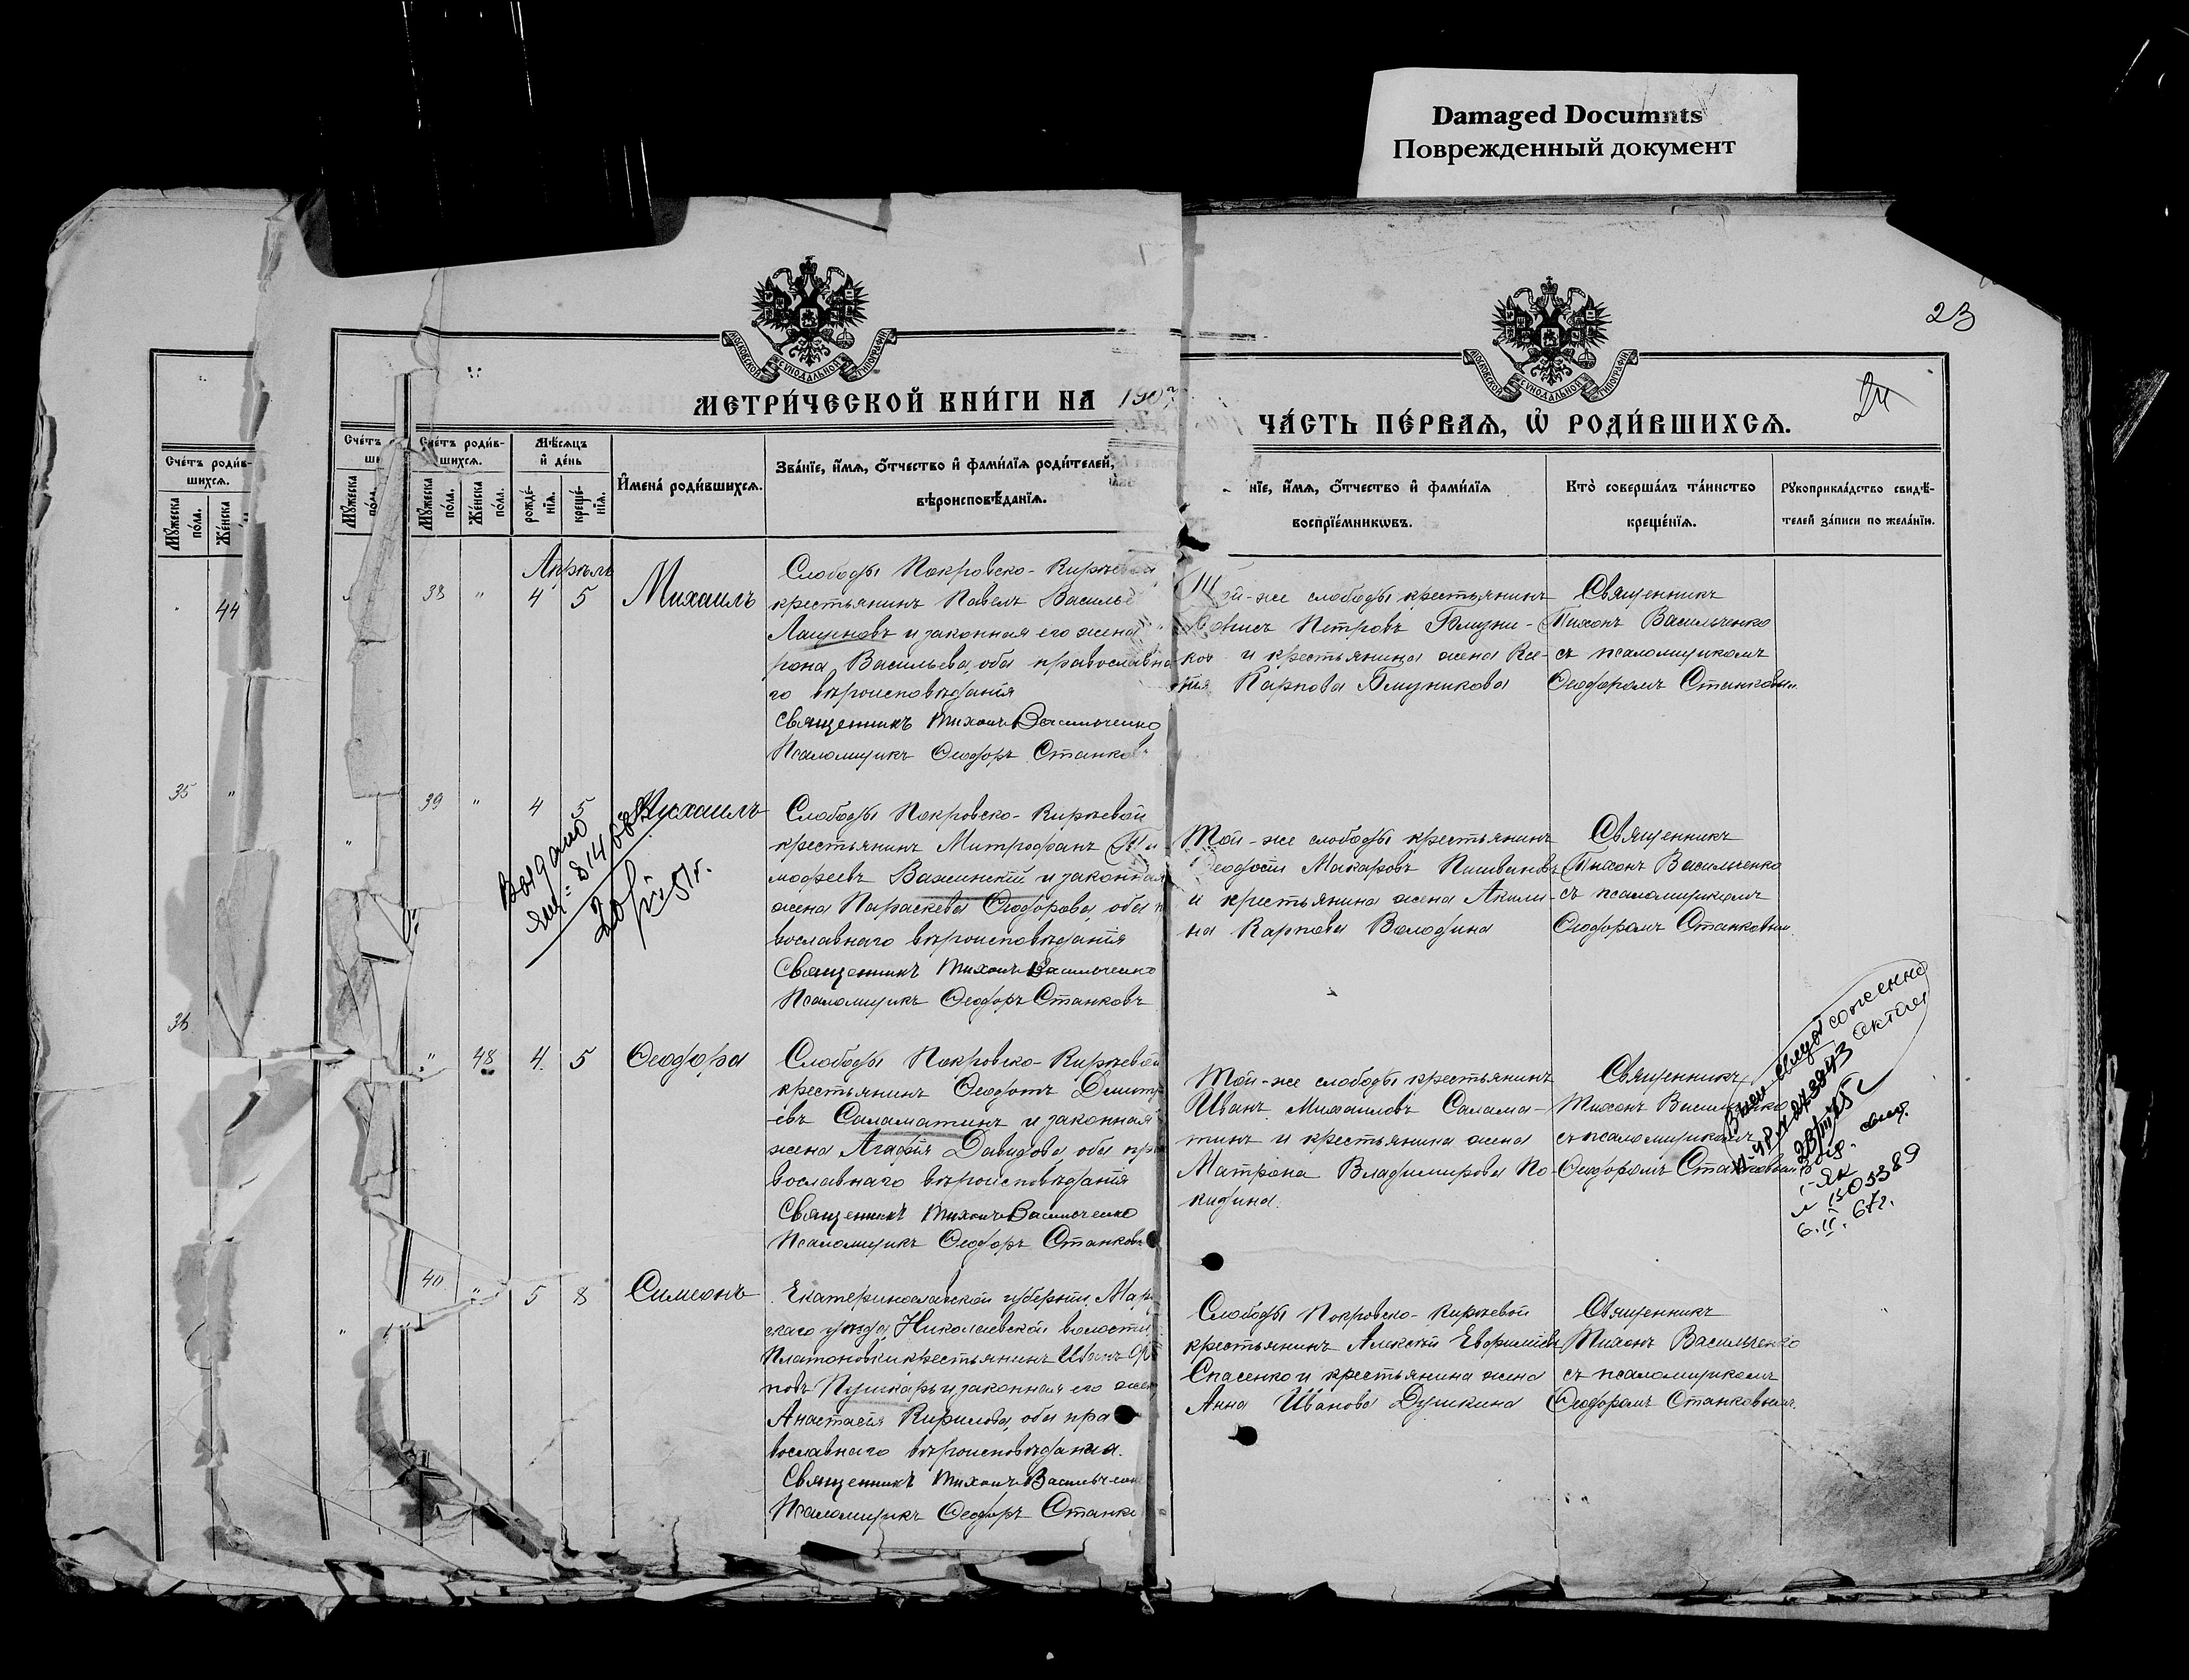 Damaged Documnts
Поврежденный документ
23
24
МОСКОВСКОЙ СѴНОДАЛЬНОЙ ТИПОГРАФІИ
МОСКОВСКОЙ СѴНОДАЛЬНОЙ ТИПОГРАФІИ
МЕТРИ́ЧЕСКОЙ КНИ́ГИ НА 1907
ЧА́СТЬ ПЕ́РВАѦ, Ѡ҆ РОДИ́ВШИХСѦ.
Сче́тъ роди́в-
шихсѧ.
Мꙋ́жеска
по́ла.
Же́нска
Сче́тъ
ши
Мꙋ́жеска
по́ла.
Сче́тъ роди́в-
шихсѧ.
Мꙋ́жеска
по́ла.
Же́нска
по́ла.
Мѣ́сѧцъ
и҆ де́нь
рожде́-
нїѧ.
креще́-
нїѧ.
И҆мена̀ роди́вшихсѧ.
Зва́нїе, и҆́мѧ, ѻ҆́тчество и҆ фами́лїѧ роди́телей,
вѣроисповѣ́данїѧ.
нїе, и҆́мѧ, ѻ҆́тчество и҆ фами́лїѧ
воспрїе́мникѡвъ.
Кто̀ соверша́лъ та́инство
креще́нїѧ.
Рꙋкоприкла́дство свидѣ́-
телей за́писи по жела́нїю.
44
35
36
Апрѣль
38 " 4 5 Михаилъ
Слободы Покровско-Кирѣевой
крестьянинъ Павелъ Василье
Лащеновъ и законная его жена
рона Васильева, оба православна
го вѣроисповѣданія
Священникъ Тихонъ Васильченко
Псаломщикъ Ѳеодоръ Станков
Той-же слободы крестьянинъ
Борисъ Петровъ Близни-
ков и крестьянина жена Ксе-
нія Карпова Близникова
Священникъ
Тихонъ Васильченко
съ псаломщикомъ
Ѳеодоромъ Станковым
39 " 4 5 Михаилъ
Слободы Покровско-Кирѣевой
крестьянинъ Митрофанъ Ти
мофеевъ Важинскій и законная
жена Параскева Ѳеодорова, оба п
вославнаго вѣроисповѣданія
Священникъ Тихонъ Васильченко
Псаломщикъ Ѳеодоръ Станковъ
Той-же слободы крестьянинъ
Ѳеодосій Макаровъ
и крестьянина жена Акили-
на Карпова Володина
Священникъ
Тихонъ Васильченко
съ псаломщикомъ
Ѳеодоромъ Станковым.
51г.
" 48 4. 5 Ѳеодора
Слободы Покровско-Кирѣевой
крестьянинъ Ѳеодотъ Димитр
-евъ Саламатинъ и законная
жена Агафія Давидова, оба пра
вославнаго вѣроисповѣданія
Священникъ Тихонъ Васильченко
Псаломщикъ Ѳеодоръ Станковъ
Той-же слободы крестьянинъ
Иванъ Михаиловъ Салама-
тинъ и крестьянина жена
Матрона Владимирова По-
кидина.
Священникъ
Тихонъ Васильченко
съ псаломщикомъ
Ѳеодоромъ Станковым
6.II.67г.
40 " 5 8 Симеонъ
Екатеринославской губерніи, Мар
скаго уѣзда, Николаевской волости
Платоновки крестьянинъ Иванъ
повъ Пушкарь и законная его жен
Анастасія Кирилова, оба пра
вославнаго вѣроисповѣданія.
Священникъ Тихонъ Васильчен
Псаломщикъ Ѳеодоръ Станко
Слободы Покровско-Кирѣевой
крестьянинъ Алексѣй Евфиміев
Спасенко и крестьянина жена
Анна Иванова Душкина
Священникъ
Тихонъ Васильченко
съ псаломщикомъ
Ѳеодоромъ Станковым.